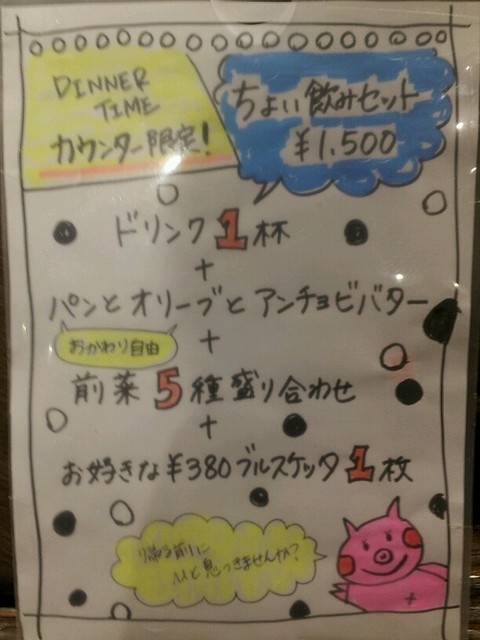 DINNER
TIME
カウンター限定!
ちょい飲みセット
¥1,500
ドリンク1杯
+
パンとオリーブとアンチョビバター
おかわり自由
+
前菜5種盛り合わせ
+
お好きな¥380ブルスケッタ1枚
帰る前に
ひと息つきませんか?